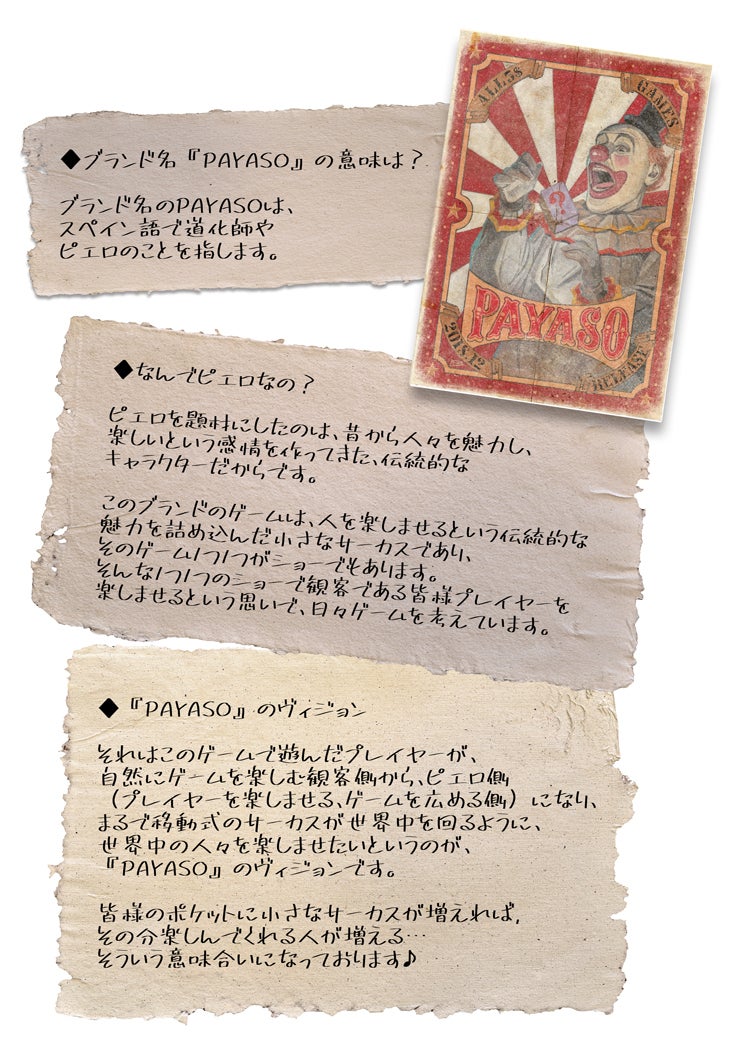 ◆ブランド名『PAYASO』の意味は？
ブランド名のPAYASOは、
スペイン語で道化師や
ピエロのことを指します。
ALL5S
GAMES
PAYASO
2018.12
RELEASE
◆なんでピエロなの？
ピエロを題材にしたのは、昔から人々を魅力し、
楽しいという感情を作ってきた、伝統的な
キャラクターだからです。
このブランドのゲームは、人を楽しませるという伝統的な
魅力を詰め込んだ小さなサーカスであり、
そのゲーム1つ1つがショーでもあります。
そんな1つ1つのショーで観客である皆様プレイヤーを
楽しませるという思いで、日々ゲームを考えています。
◆『PAYASO』のヴィジョン
それはこのゲームで遊んだプレイヤーが、
自然にゲームを楽しむ観客側から、ピエロ側
（プレイヤーを楽しませる、ゲームを広める側）になり、
まるで移動式のサーカスが世界中を回るように、
世界中の人々を楽しませたいというのが、
『PAYASO』のヴィジョンです。
皆様のポケットに小さなサーカスが増えれば、
その分楽しんでくれる人が増える…
そういう意味合いになっております♪